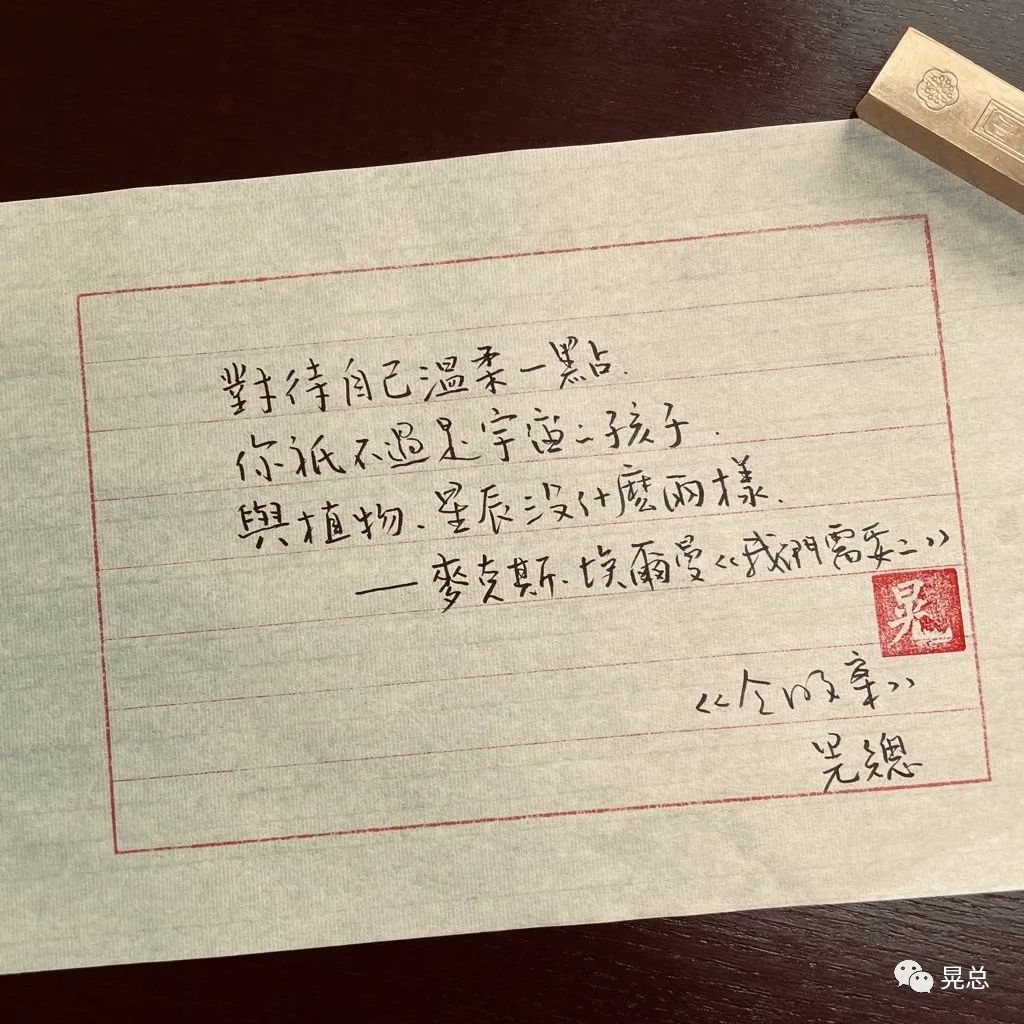 對待自己溫柔一點.
你祇不過是宇宙之孩子.
與植物、星辰沒什麼兩樣.
—麥克斯·埃爾曼《我們需要之》
晃
晃總
晃总